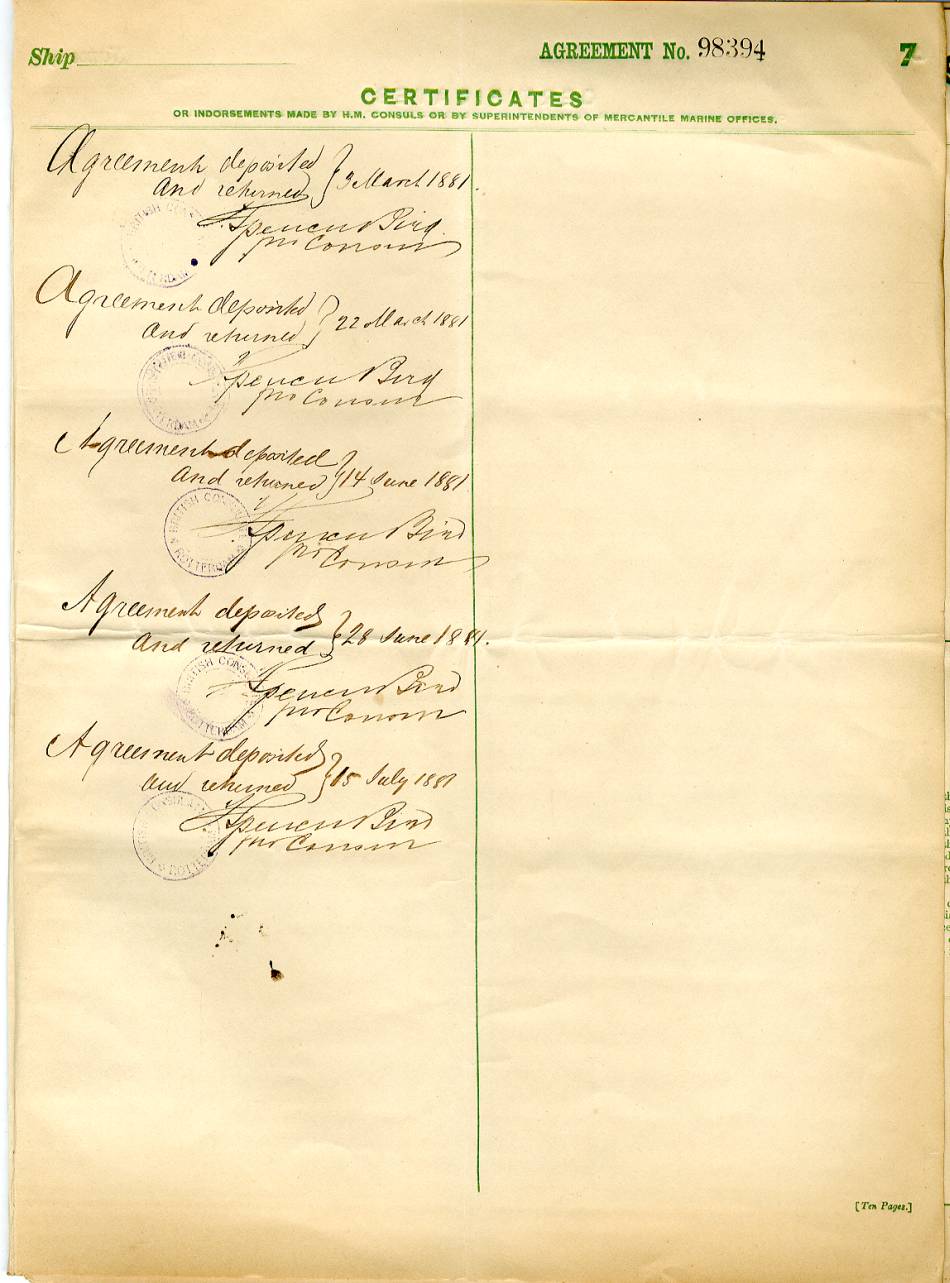 Ship
AGREEMENT No. 98394
7
CERTIFICATES
OR INDORSEMENTS MADE BY H.M. CONSULS OR BY SUPERINTENDENTS OF MERCANTILE MARINE OFFICES.
Agreement deposited
and returned } 3 March 1881.
Spencer Bird
pro Consul
Agreement deposited
and returned } 22 March 1881
BRITISH CONSULATE ROTTERDAM
Spencer Bird
pro Consul
Agreement deposited
and returned } 14 June 1881
BRITISH CONSULATE ROTTERDAM
Spencer Bird
pro Consul
Agreement deposited
and returned } 28 June 1881.
BRITISH CONSULATE ROTTERDAM
Spencer Bird
pro Consul
Agreement deposited
and returned } 15 July 1881
Spencer Bird
pro Consul
[Ten Pages.]